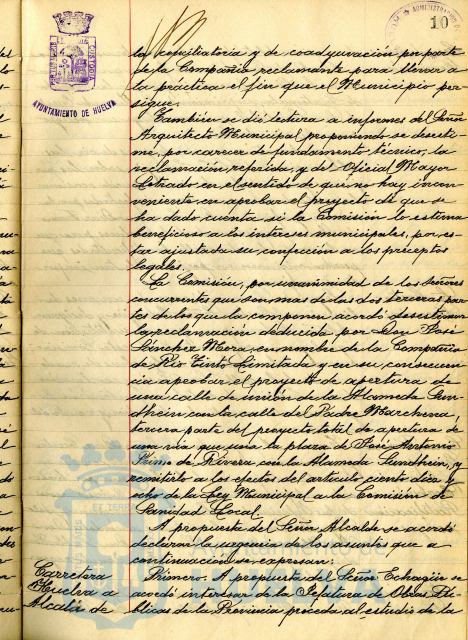 10
AYUNTAMIENTO DE HUELVA
la conciliatoria y de coadyuvación por parte
de la Compañia reclamante para llevar a
la práctica el fin que el Municipio per-
sigue.
Tambien se dió lectura a informes del Señor
Arquitecto Municipal proponiendo se desesti-
me, por carecer de fundamento técnico, la
reclamación referida, y del Oficial Mayor
Letrado en el sentido de que no hay incon-
veniente en aprobar el proyecto de que se
ha dado cuenta si la Comisión lo estima
beneficioso a los intereses municipales, por es-
tar ajustada su confección a los preceptos
legales.
La Comisión, por unanimidad de los Señores
concurrentes que son mas de las dos terceras par-
tes de los que la componen acordó desestimar
la reclamación deducida por Don José
Sánchez Mora, en nombre de la Compañia
de Rio Tinto Limitada y en su consecuen-
cia aprobar el proyecto de apertura de
una calle de unión de la Alameda Sun-
dheim con la calle del Padre Marchena,
tercera parte del proyecto total de apertura de
una via que una la plaza de José Antonio
Primo de Rivera con la Alameda Sundheim, y
remitirlo a los efectos del articulo ciento diez y
ocho de la Ley Municipal a la Comisión de
Sanidad Local.
A propuesta del Señor Alcalde se acordó
declarar la urgencia de los asuntos que a
continuación se expresan:
Carretera
Huelva a
Alcalá de
Primero. A propuesta del Señor Echagüe se
acordó interesar de la Jefatura de Obras Pú-
blicas de la Provincia proceda al estudio de la